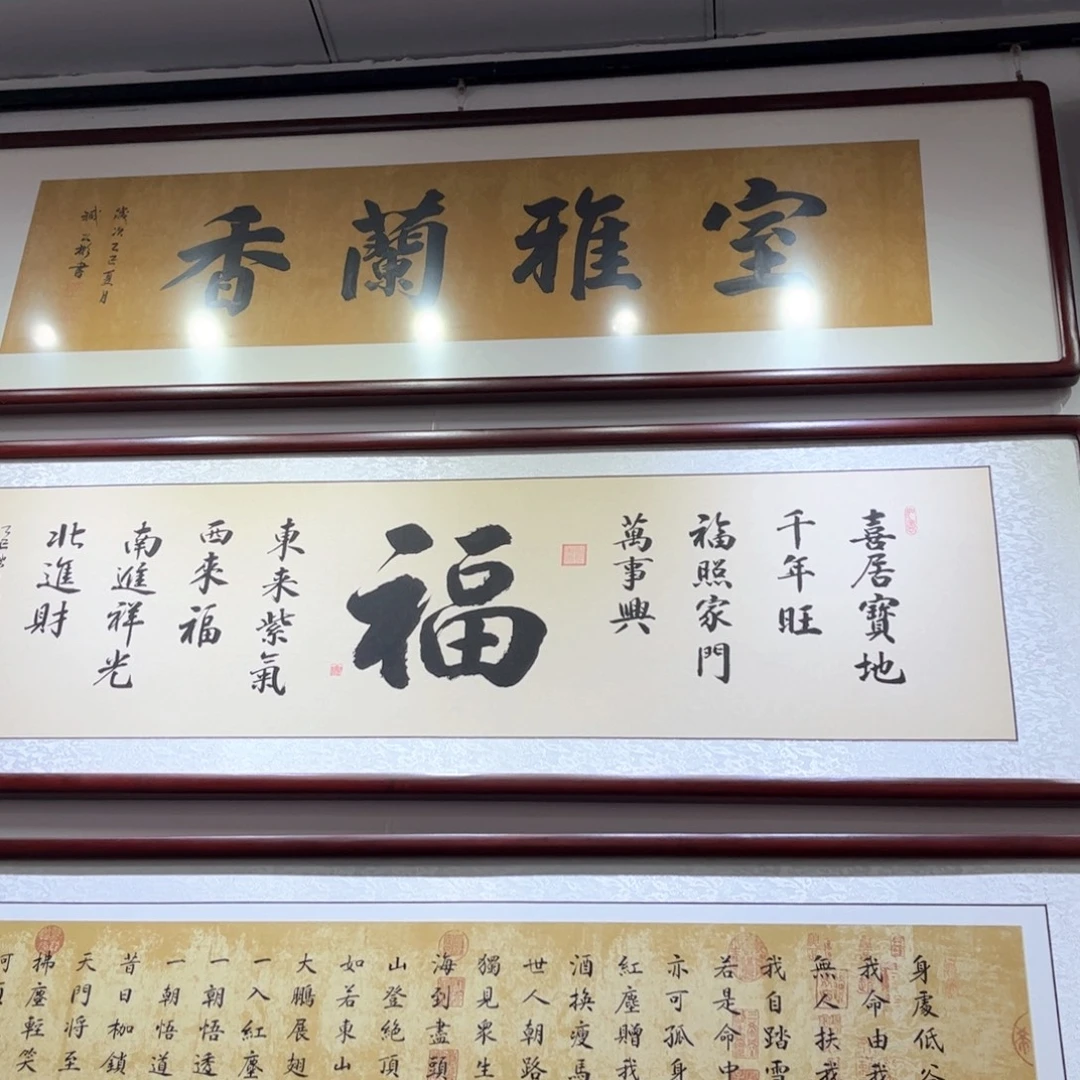 室雅蘭香
歲次乙巳夏月
書
喜居寶地
千年旺
福照家門
萬事興
福
東来紫氣
西来福
南進祥光
北進財
身處低谷
我命由我
無人扶我
我自踏雪
若是命中
亦可孤身
紅塵贈我
酒換瘦馬
世人朝路
獨見眾生
海到盡頭
山登絕頂
如若東山
大鵬展翅
一入紅塵
一朝悟透
一朝悟道
昔日枷鎖
天門将至
拂塵輕笑